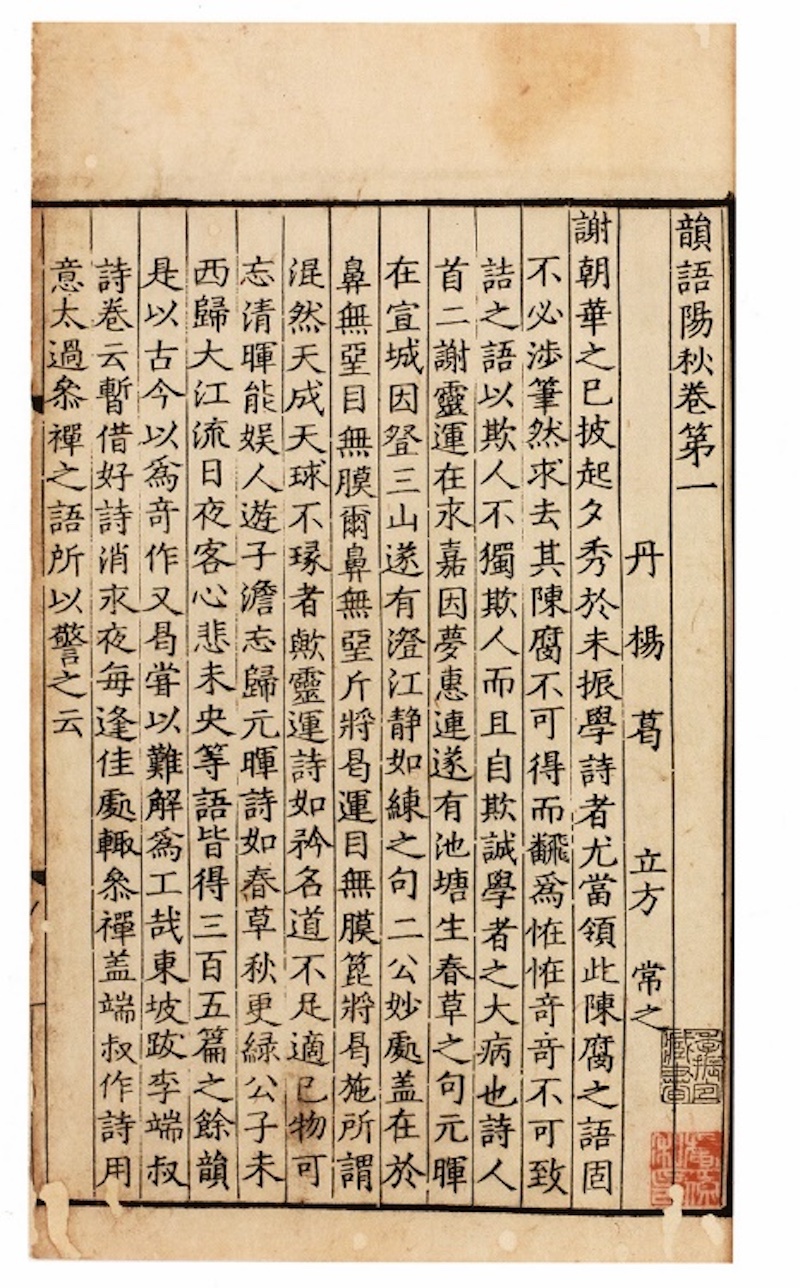 韻語陽秋卷第一
丹楊葛立方常之
謝朝華之已披起夕秀於未振學詩者尤當領此陳腐之語固
不必涉筆然求去其陳腐不可得而飜爲恠恠奇奇不可致
詰之語以欺人不獨欺人而且自欺誠學者之大病也詩人
首二謝靈運在永嘉因夢惠連遂有池塘生春草之句元暉
在宣城因登三山遂有澄江静如練之句二公妙處盖在於
鼻無堊目無膜爾鼻無堊斤將曷運目無膜篦將曷施所謂
混然天成天球不瑑者歟靈運詩如矜名道不足適已物可
忘清暉能娱人遊子澹忘歸元暉詩如春草秋更緑公子未
西歸大江流日夜客心悲未央等語皆得三百五篇之餘韻
是以古今以爲竒作又曷甞以難解爲工哉東坡跋李端叔
詩卷云暫借好詩消永夜毎逢佳處輙叅禪盖端叔作詩用
意太過叅禪之語所以警之云